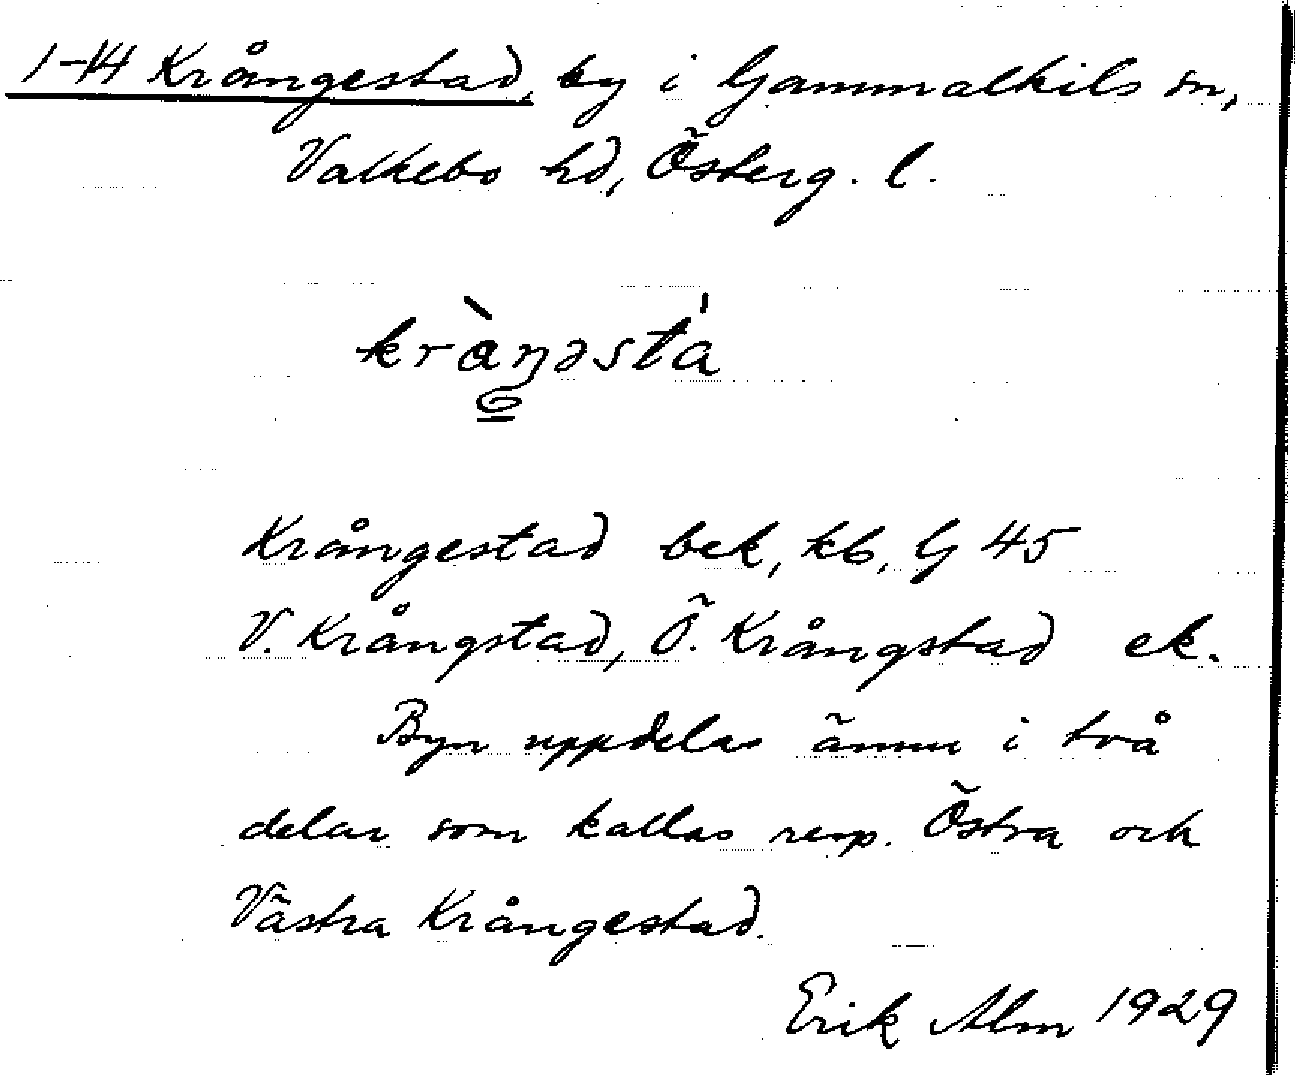 1-14 Krångestad, by i Gammalkils sn,
Valkebo hd, Österg. l.
kràŋəsta
Krångestad bek, kb, G 45
V. Krångstad, Ö. Krångstad ek.
Byn uppdelas ännu i två
delar som kallas resp. Östra och
Västra Krångestad.
Erik Alm 1929